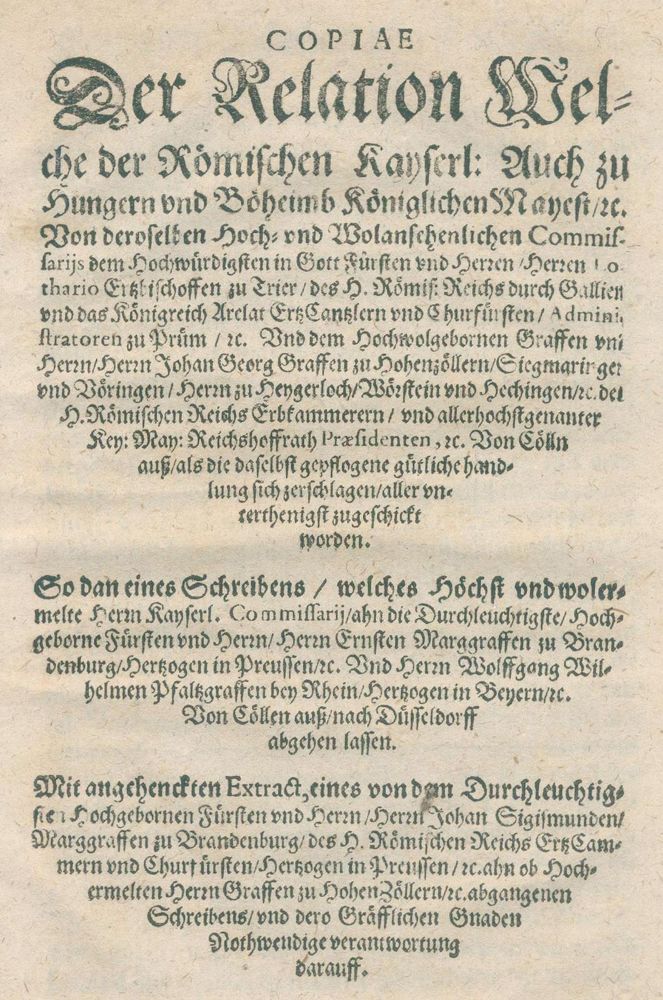 COPIAE
Der Relation Wel-
che der Römischen Kayserl: Auch zu
Hungern vnd Böheimb Königlichen Mayest/rc.
Von deroselben Hoch- vnd Wolansehenlichen Commis-
sarijs dem Hochwürdigsten in Gott Fürsten vnd Herren/Herren Lo
thario Ertzbischoffen zu Trier/des H. Römis: Reichs durch Gallien
vnd das Königreich Arelat ErtzCantzlern vnd Churfürsten/Admini,
stratoren zu Prüm/rc. Vnd dem Hochwolgebornen Graffen vnd
Herrn/Herrn Johan Georg Graffen zu Hohenzöllern/Siegmaringen
vnd Vöringen/Herrn zu Heygerloch/Wörstein vnd Hechingen/rc. des
H. Römischen Reichs Erbkammerern/vnd allerhochstgenanter
Key: May: Reichshoffrath Præsidenten, rc. Von Cölln
auß/als die daselbst gepflogene gütliche hand-
lung sich zerschlagen/aller vn-
terthenigst zugeschickt
worden.
So dan eines Schreibens/welches Höchst vnd woler-
melte Herrn Kayserl. Commissarij/ahn die Durchleuchtigste/Hoch-
geborne Fürsten vnd Herrn/Herrn Ernsten Marggraffen zu Bran-
denburg/Hertzogen in Preussen/rc. Vnd Herrn Wolffgang Wil-
helmen Pfaltzgraffen bey Rhein/Hertzogen in Beyern/rc.
Von Cöllen auß/nach Düsseldorff
abgehen lassen.
Mit angehenckten Extract, eines von dem Durchleuchtig-
sten Hochgebornen Fürsten vnd Herrn/Herrn Johan Sigismunden/
Marggraffen zu Brandenburg/des H. Römischen Reichs ErtzCam-
mern vnd Churfürsten/Hertzogen in Preussen/rc. ahn ob Hoch-
ermelten Herrn Graffen zu HohenZöllern/rc. abgangenen
Schreibens/vnd dero Gräfflichen Gnaden
Nothwendige verantwortung
darauff.